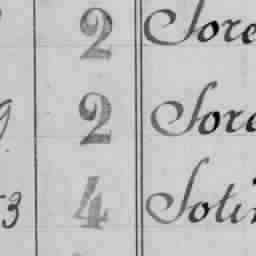 2 Sore
9 2 Sora
53 4 Sotin